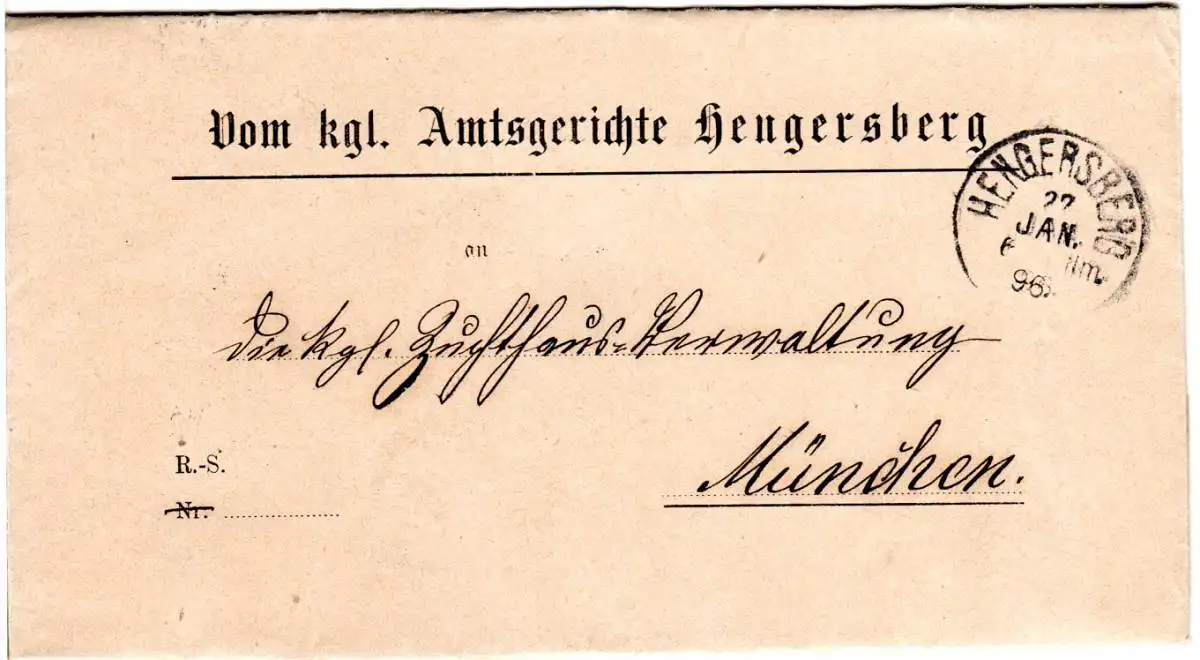 Vom kgl. Amtsgerichte Hengersberg
HENGERSBERG
22
JAN.
6 Nm.
96.
an
die kgl. Zuchthaus-Verwaltung
München.
R.-S.
Nr.